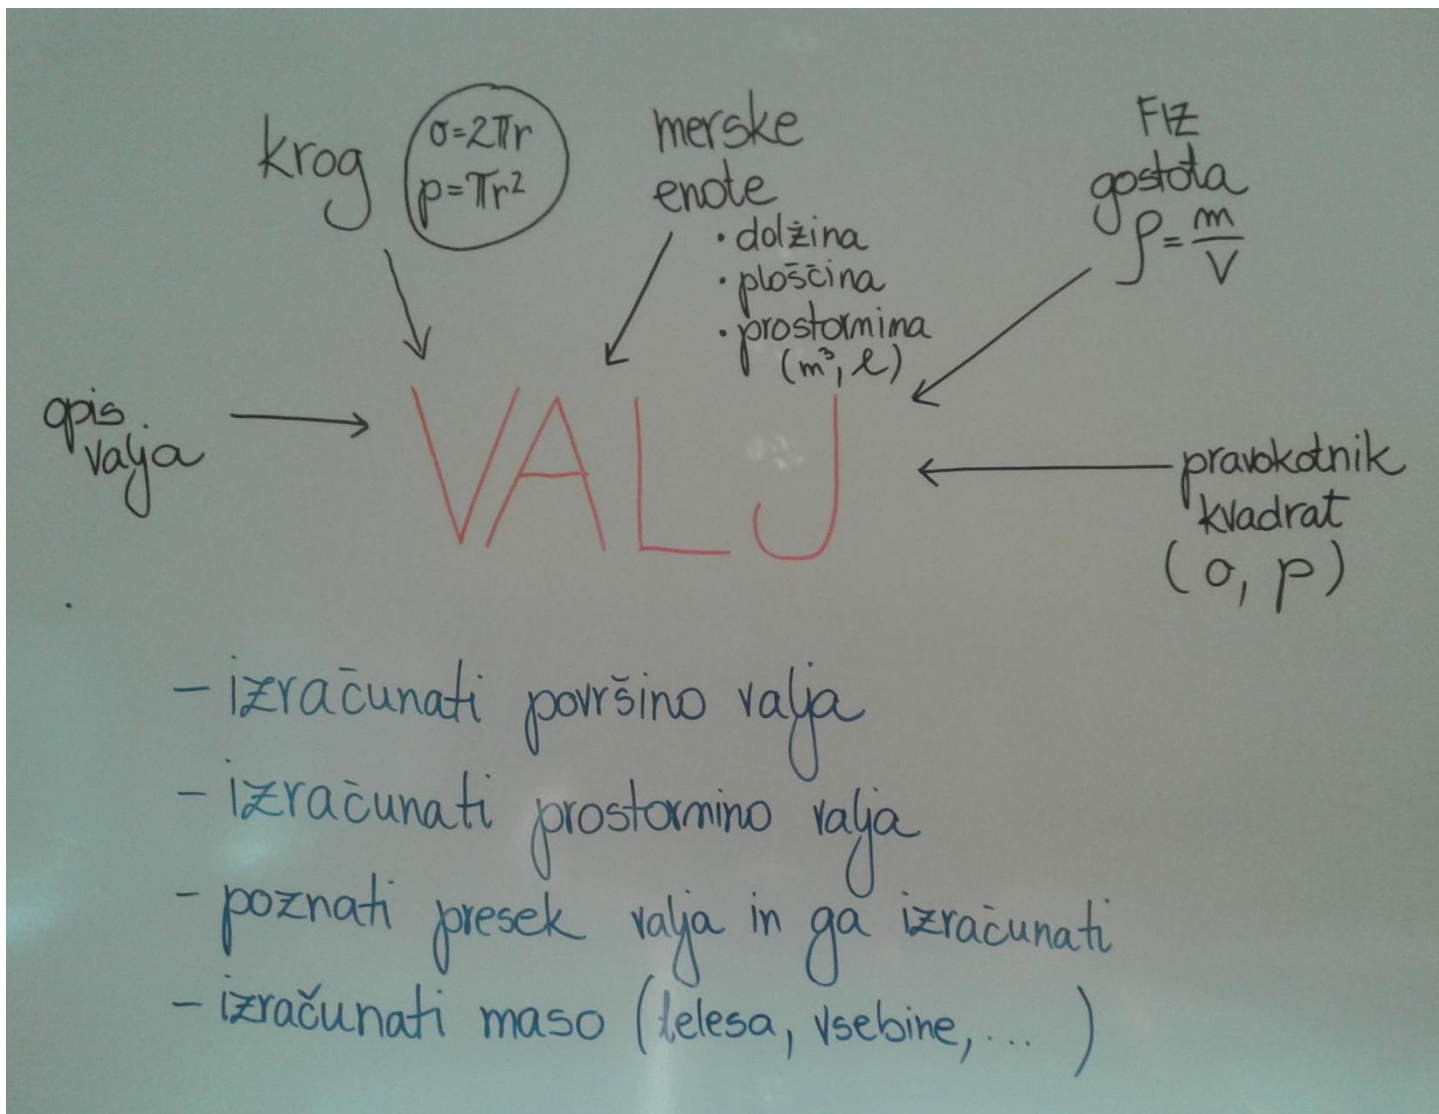 krog
o=2πr
p=πr²
merske
enote
• dolžina
• ploščina
• prostornina
(m³, l)
FIZ
gostota
ρ = m/V
opis
valja
VALJ
pravokotnik
kvadrat
(o, p)
- izračunati površino valja
- izračunati prostornino valja
- poznati presek valja in ga izračunati
- izračunati maso (telesa, vsebine, ... )